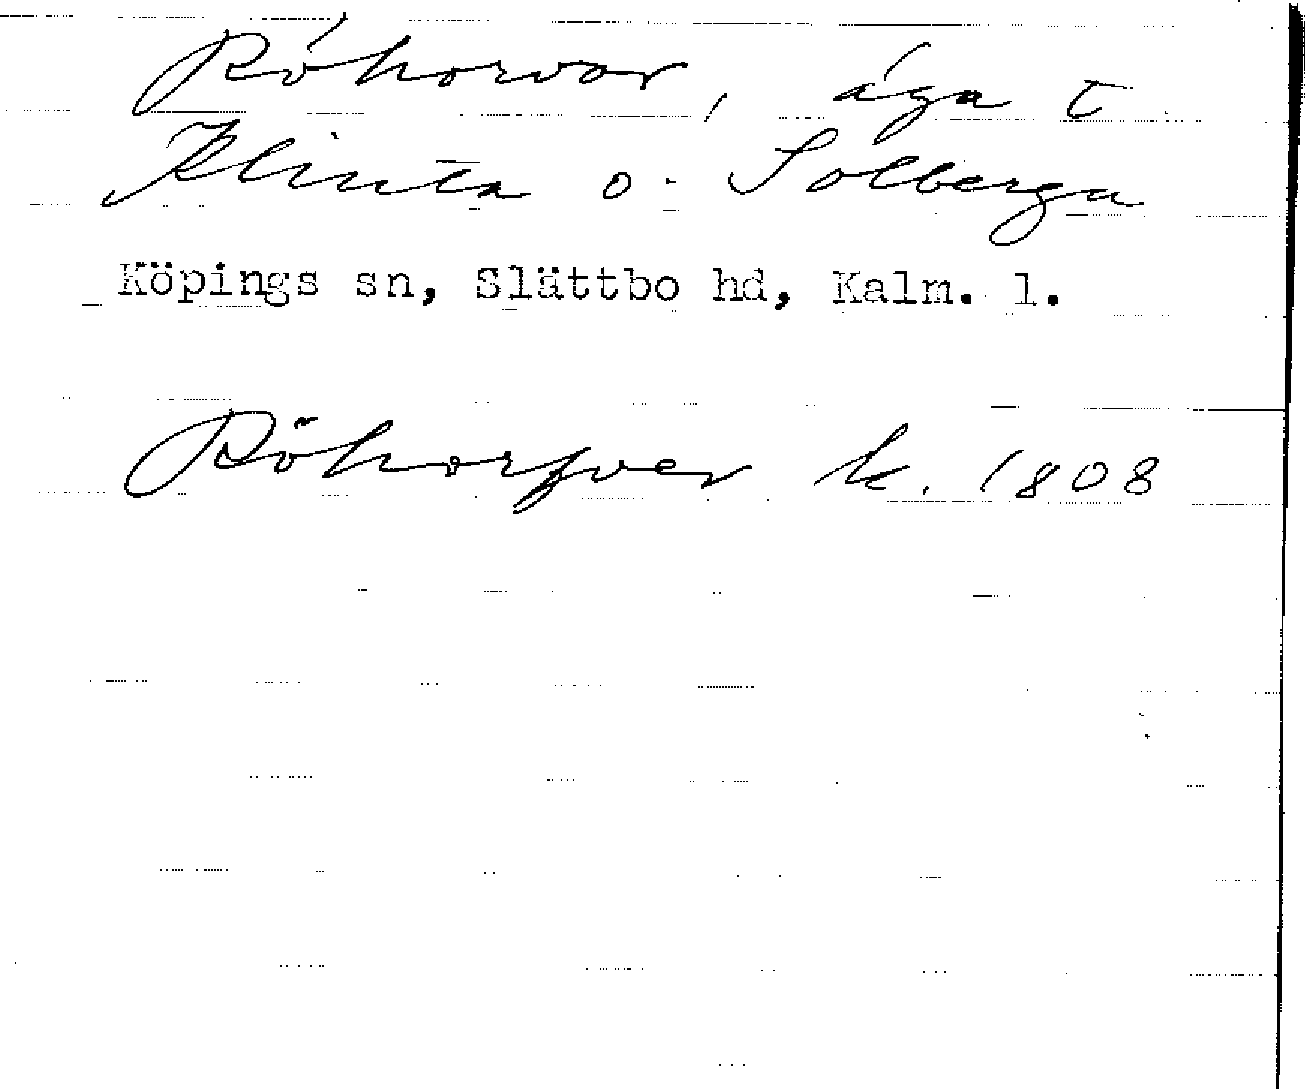 Röhorvor, äga t
Klinta o. Solberga
Köpings sn, Slättbo hd, Kalm. l.
Röhorfver k. 1808